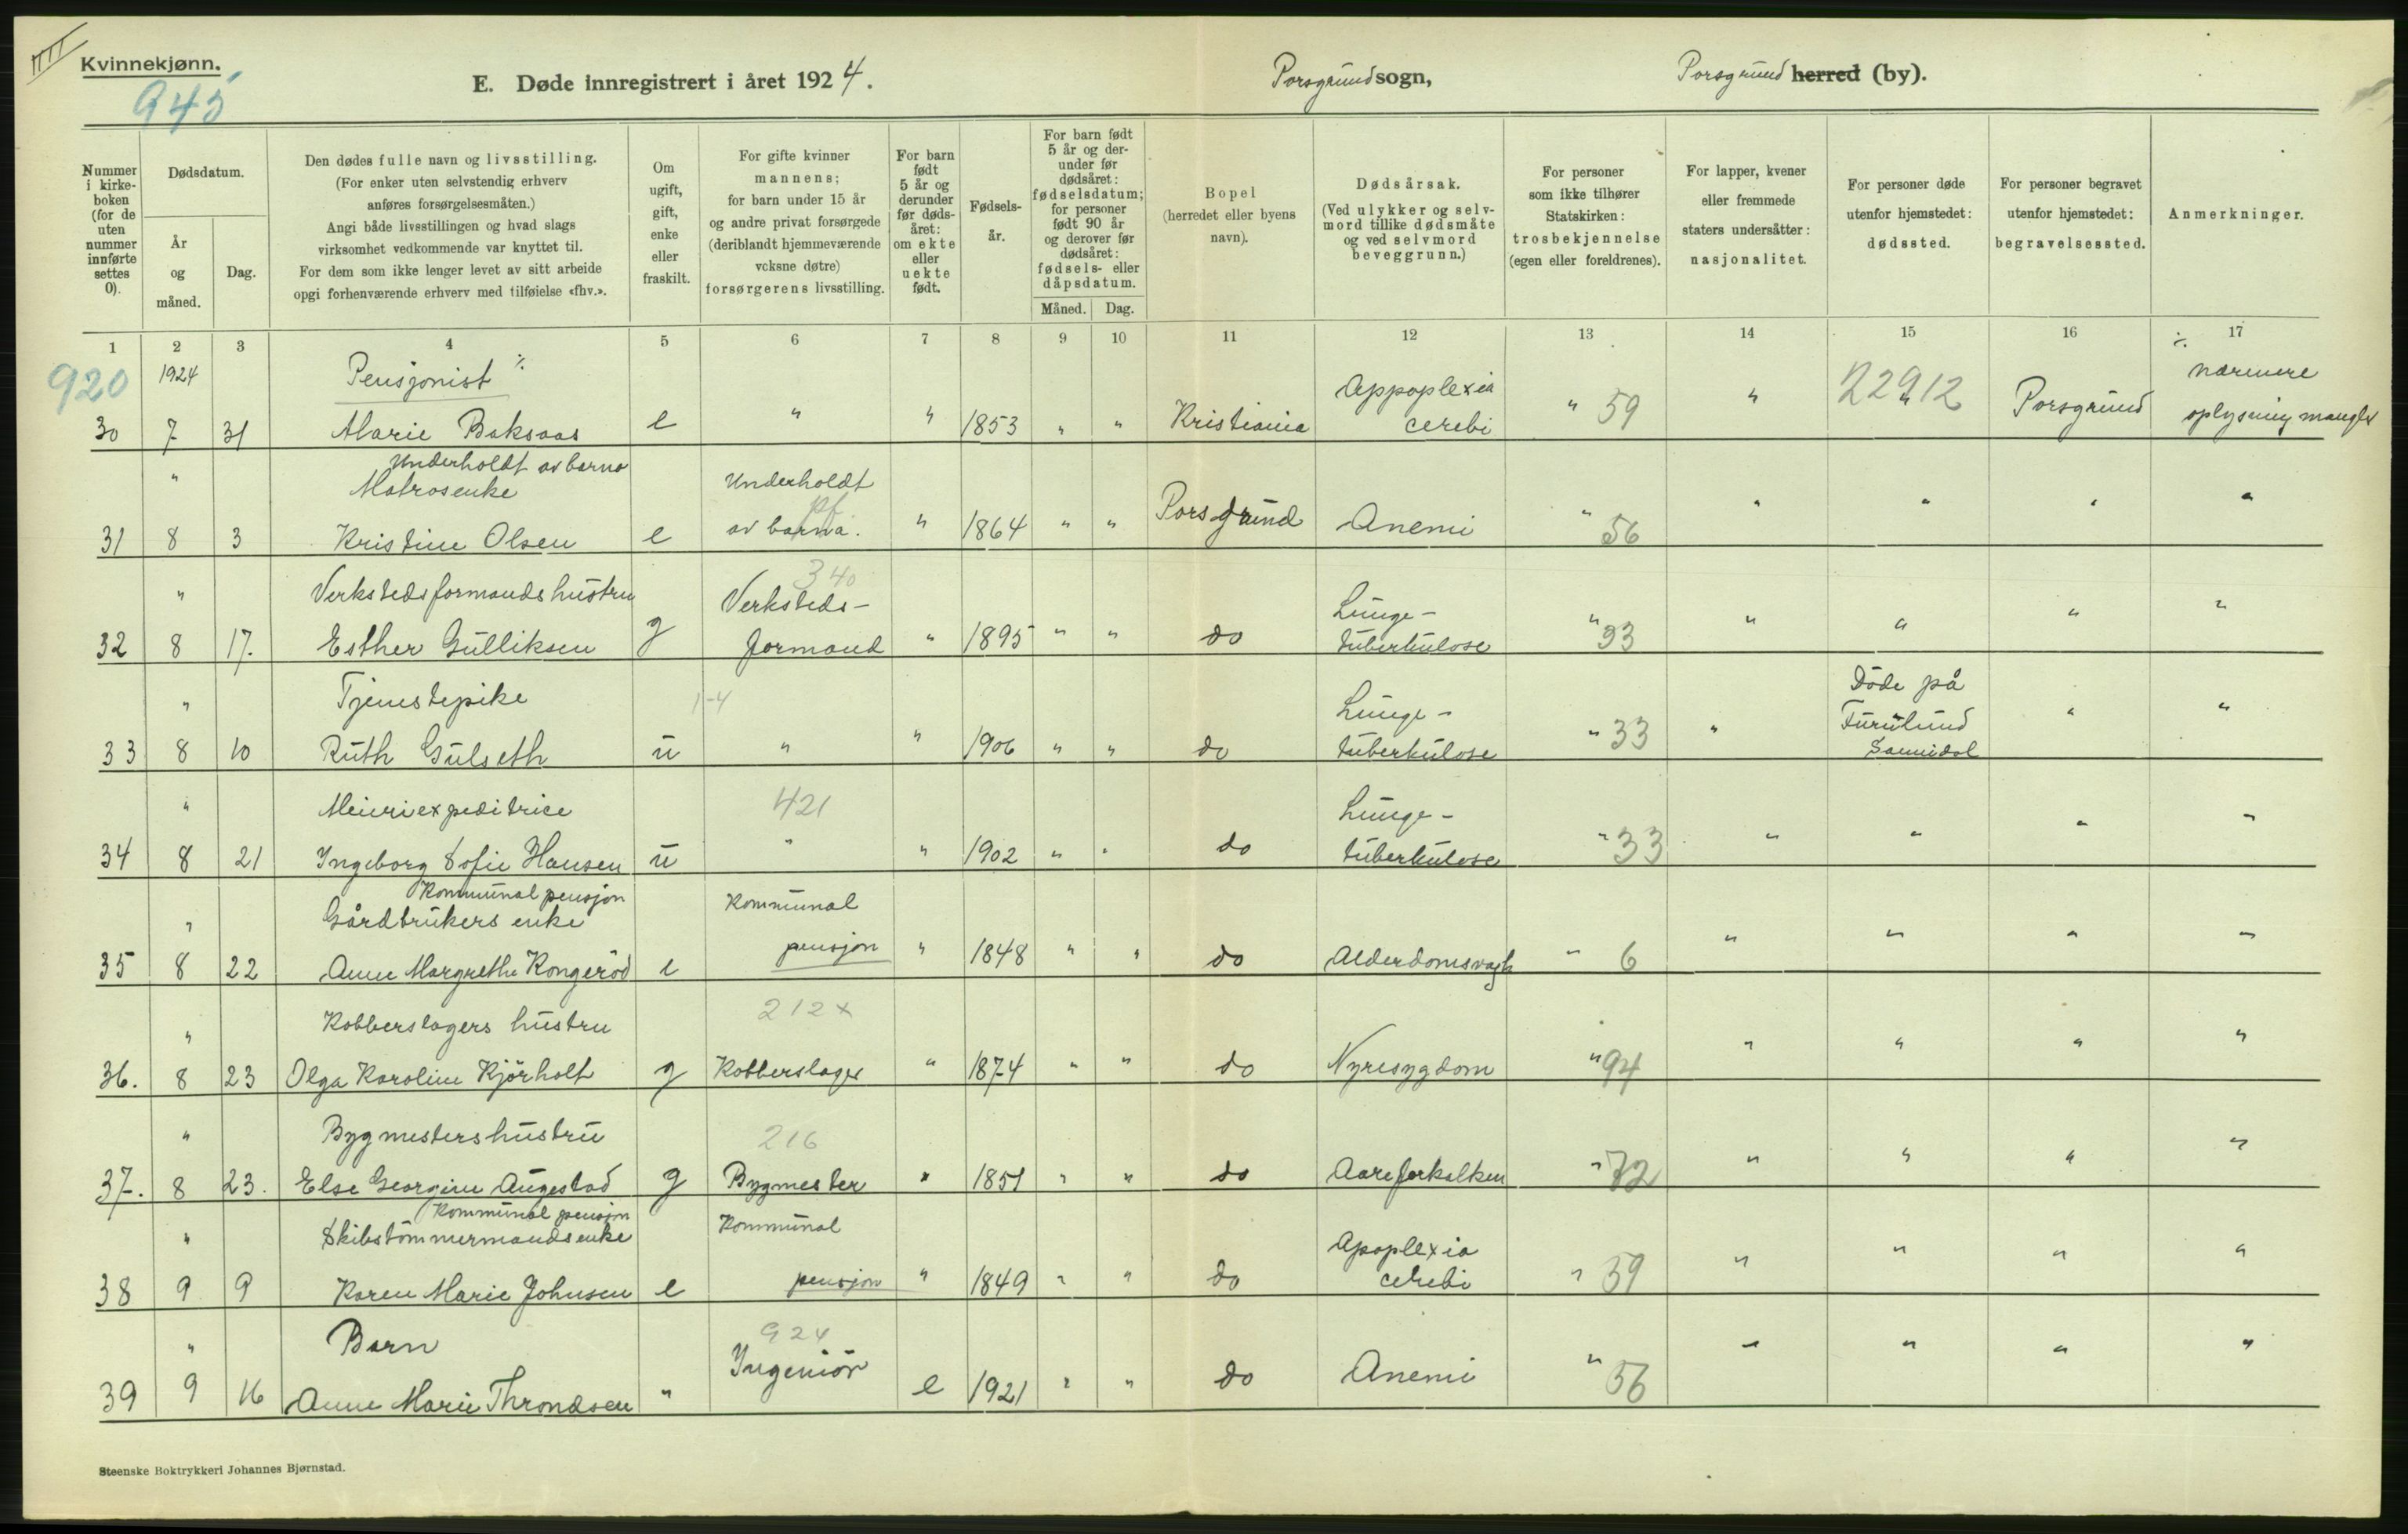 III
Kvinnekjønn.
945
E. Døde innregistrert i året 1924.
Porsgrund sogn,
Porsgrund herred (by).
Nummer i kirkeboken (for de uten nummer innførte settes 0).
Dødsdatum.
År og måned.
Dag.
Den dødes fulle navn og livsstilling.
(For enker uten selvstendig erhverv anføres forsørgelsesmåten.)
Angi både livsstillingen og hvad slags virksomhet vedkommende var knyttet til.
For dem som ikke lenger levet av sitt arbeide opgi forhenværende erhverv med tilføielse «fhv.».
Om ugift, gift, enke eller fraskilt.
For gifte kvinner mannens; for barn under 15 år og andre privat forsørgede (deriblandt hjemmeværende vcksne døtre) forsørgerens livsstilling.
For barn født 5 år og derunder før dødsåret: om ekte eller uekte født.
Fødselsår.
For barn født 5 år og derunder før dødsåret: fødselsdatum; for personer født 90 år og derover før dødsåret: fødsels- eller dåpsdatum.
Måned. Dag.
Bopel (herredet eller byens navn).
Dødsårsak.
(Ved ulykker og selvmord tillike dødsmåte og ved selvmord beveggrunn.)
For personer som ikke tilhører Statskirken: trosbekjennelse (egen eller foreldrenes).
For lapper, kvener eller fremmede staters undersåtter: nasjonalitet.
For personer døde utenfor hjemstedet: dødssted.
For personer begravet utenfor hjemstedet: begravelsessted.
Anmerkninger.
1 2 3 4 5 6 7 8 9 10 11 12 13 14 15 16 17
920 1924 Pensjonist ·/. Appoplexia 22912 ·/. nærmere
30 7 31 Marie Baksaas e " " 1853 " " Kristiania cerebi " 59 " " Porsgrund oplysning mangler
" Underholdt av barna
Matrosenke Underholdt pf
31 8 3 Kristine Olsen e av barna. " 1864 " " Porsgrund Anemi " 56 " " " "
" Verkstedsformands hustru 340 Verksteds- Lunge-
32 8 17. Esther Gulliksen g formand " 1895 " " do tuberkulose " 33 " " " "
" Tjenestepike 1-4 Lunge- Døde på
33 8 10 Ruth Gulseth u " " 1906 " " do tuberkulose " 33 " Furulund " "
Sannidal
" Meieriexpeditrice 421 Lunge-
34 8 21 Ingeborg Sofie Hansen u " " 1902 " " do tuberkulose " 33 " " " "
Kommunal pensjon
" Gårdbrukers enke Kommunal
35 8 22 Anne Margrethe Kongerød e pensjon " 1848 " " do Alderdomsvagh " 6 " " " "
" Kobberslagers hustru 212 x
36. 8 23 Olga Karoline Kjørholt g Kobberslager " 1874 " " do Nyresygdom " 94 " " " "
" Bygmesters hustru 216
37. 8 23. Else Georgine Augestad g Bygmester " 1851 " " do Aareforkalken " 72 " " " "
Kommunal pensjon
" Skibstømmermands enke Kommunal Apoplexia
38 9 9 Karen Marie Johnsen e pensjon " 1849 " " do cerebi " 59 " " " "
" Barn 924
39 9 16 Anne Marie Throndsen " Ingeniør e 1921 " " do Anemi " 56 " " " "
Steenske Boktrykkeri Johannes Bjørnstad.